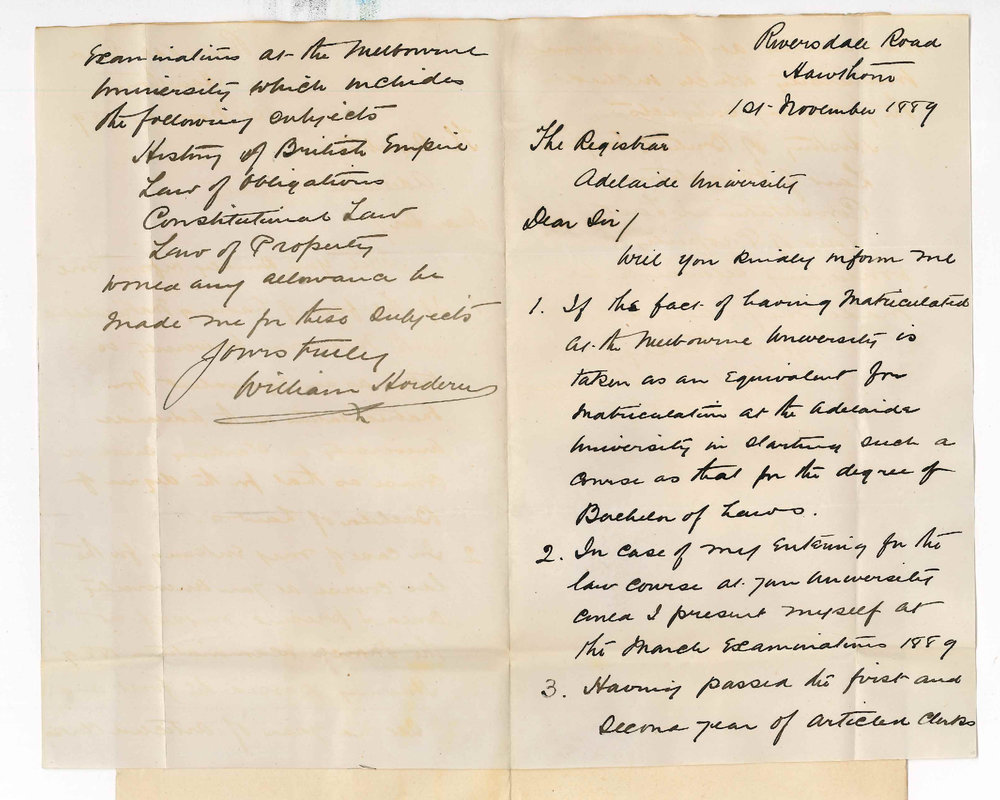 Riversdale Road
Hawthorn
1st November 1889
The Registrar
Adelaide University
Dear Sir/
Will you kindly inform me
1. If the fact of having Matriculated
at the Melbourne University is
taken as an Equivalent for
Matriculation at the Adelaide
University in starting such a
course as that for the degree of
Bachelor of Laws.
2. In case of my Entering for the
law course at your University
could I present myself at
the March Examinations 1889
3. Having passed the first and
second year of Articled Clerks
Examinations at the Melbourne
University which includes
the following subjects
History of British Empire
Law of Obligations
Constitutional Law
Law of Property
would any allowance be
made me for these subjects
Yours truly
William Hordern